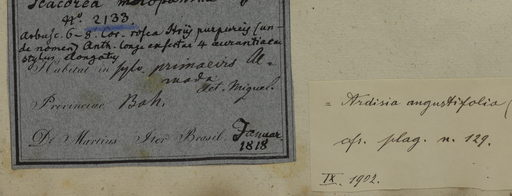 Nº 2133
Arbusc. 6-8. Cor. rosea striis purpureis (un-
de nomen) Anth. longe exsertae 4 aurantiacae
stylus elongatus
Habitat in sylv. primaevis Al-
mada
Fct. Miguel.
Provinciae Bah.
De Martius Iter Brasil. Januar.
1818
= Ardisia angustifolia (
cfr. plag. n. 129.
IX. 1902.